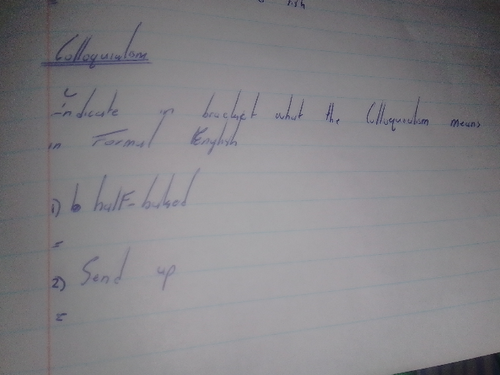 Colloquialism
Indicate in bracket what the Colloquialism means
in Formal English
1) half-baked
=
2) Send up
=